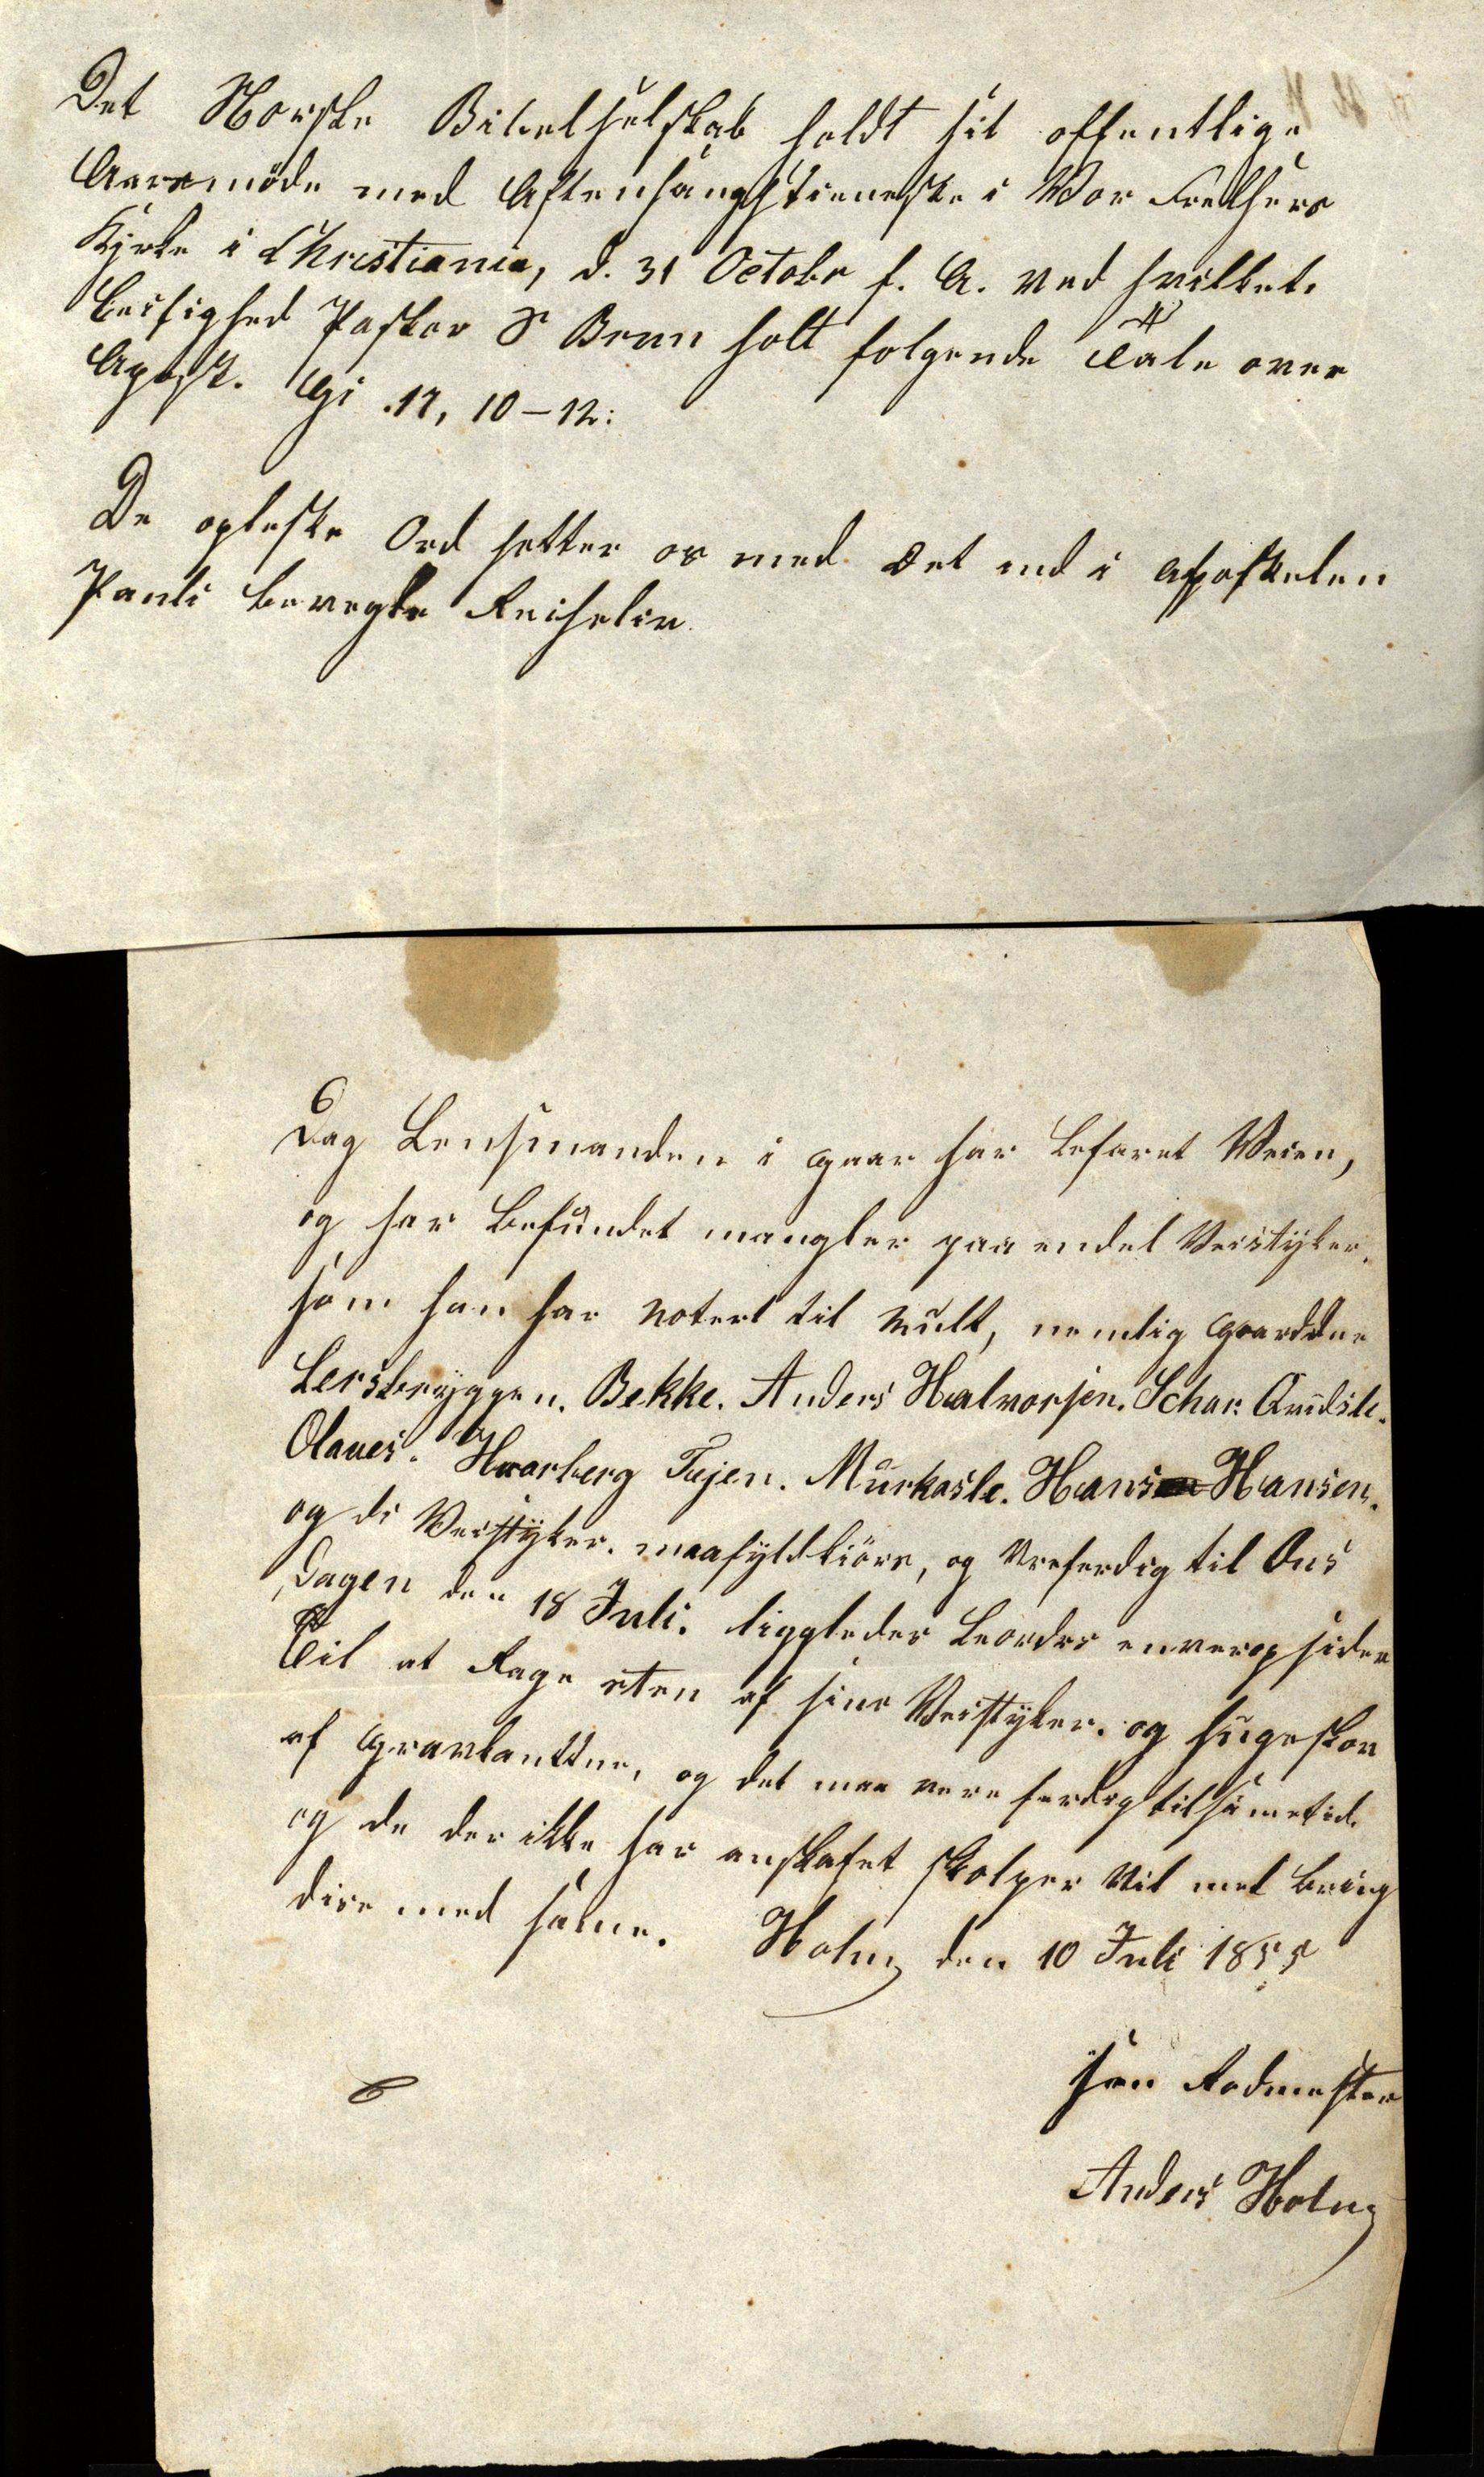 Det Norske Bibelselskab holdt sit offentlige
Aarsmöde med Aftensangstieneste i Vor Frelsers
Kirke i Christiania, d. 31 Octobr f. A. ved hvilket.
Leisighed Pastor S Brun holt folgende Tale over
Apost. Gi .17, 10-12:
De opleste Ord setter os med Det ind i Apostelen
Pauli bevegte Reiseliv.
Dag Lensmanden i gaar har befaret Veien,
og har befundet mangler paa endel Veistyker.
som han har Notert til Mult, nemlig Gaardene
Lersbryggen. Bekke. Anders Halvorsen. Schar.
Olaves. Haarberg Tejen. Murkasle. Hans Hansen.
og di Veistyker. maa fyldkiöre, og Vreferdig til Ons
Dagen den 18 Juli. liggledes beordes enver opsider
Til at Rage sten af sine Veistyker. og
af gravkantene, og det maa vere ferdig til samme tid.
og de der ikke har anskafet Stolper Vil met bring
dise med same. Holm den 10 Juli 1855
Rodmester
Anders Holm